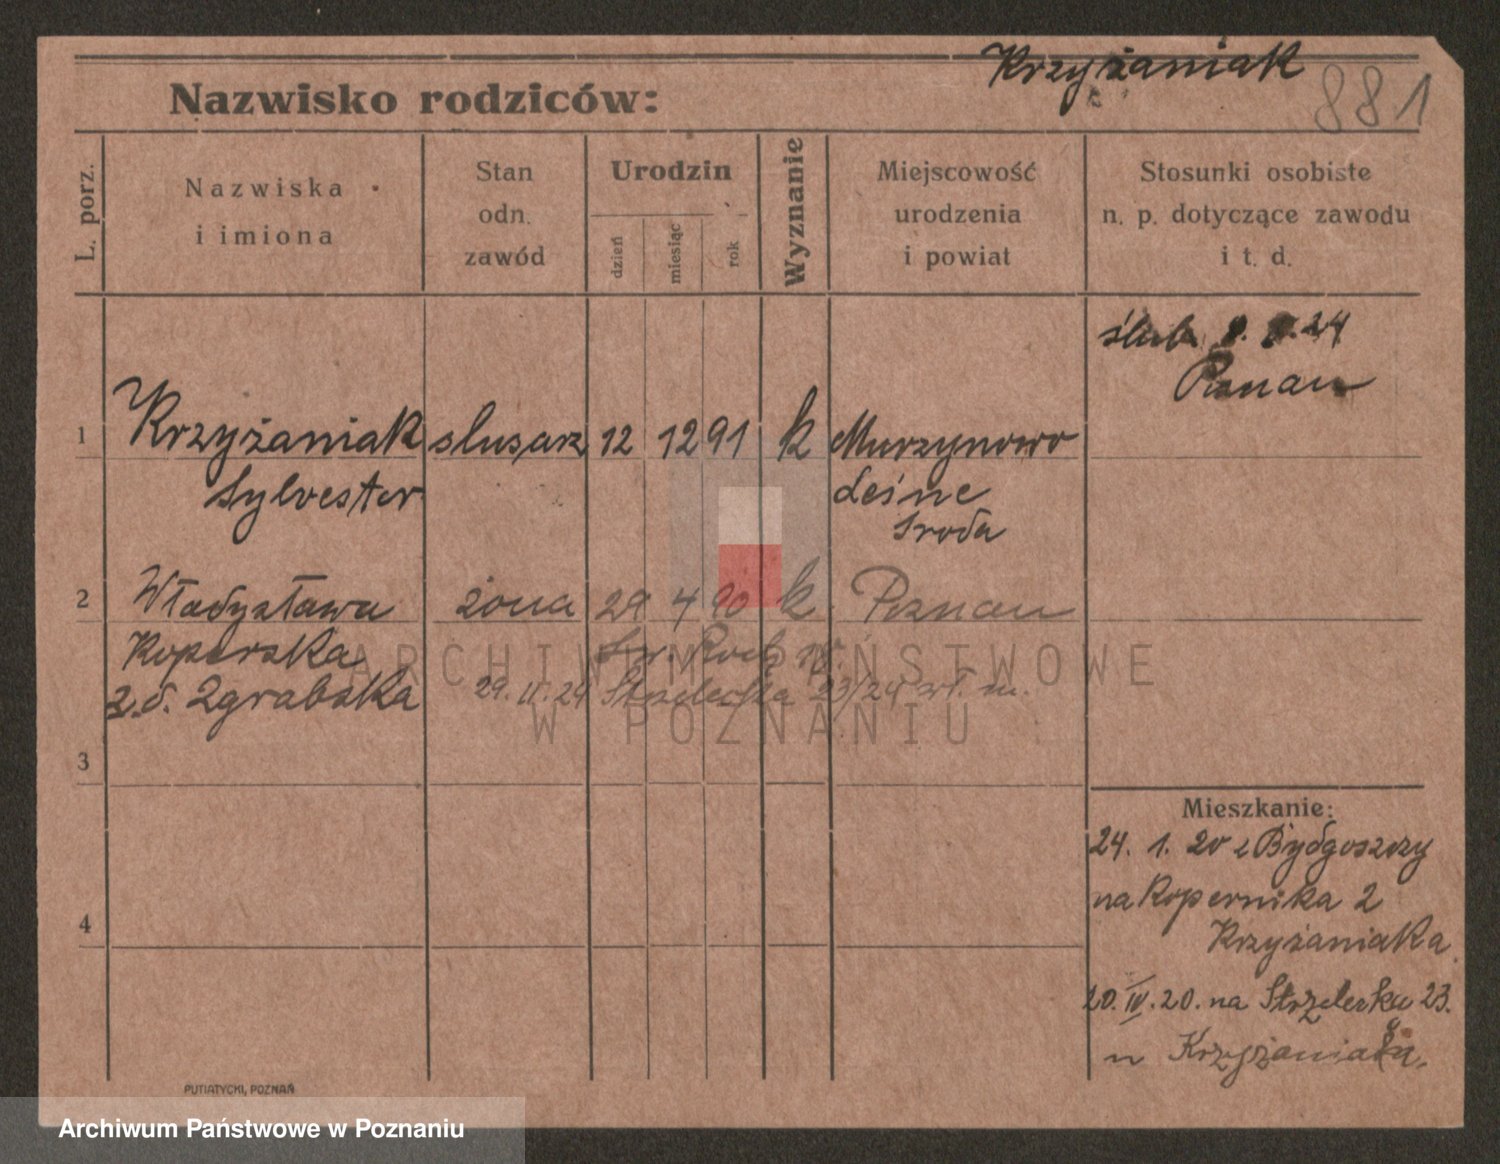 Krzyżaniak
881
Nazwisko rodziców:
L. porz.
Nazwiska
i imiona
Stan
odn.
zawód
Urodzin
dzień
miesiąc
rok
Wyznanie
Miejscowość
urodzenia
i powiat
Stosunki osobiste
n. p. dotyczące zawodu
i t. d.
ślub 24
Poznań
1 Krzyżaniak ślusarz 12 12 91 k Murzynowo
Sylvester Leśne
Środa
2 Władysława żona 29 4 90 k Poznań
Koperska
z. d. Zgrabska
29. 11. 24 Strzelecka 23/24 wł. m.
ARCHIWUM PAŃSTWOWE
W POZNANIU
3
Mieszkanie:
24. 1. 20 z Bydgoszczy
na Kopernika 2
4
Krzyżaniaka
20. IV. 20. na Strzelecka 23.
u Krzyżaniaka.
PUTIATYCKI, POZNAŃ
Archiwum Państwowe w Poznaniu